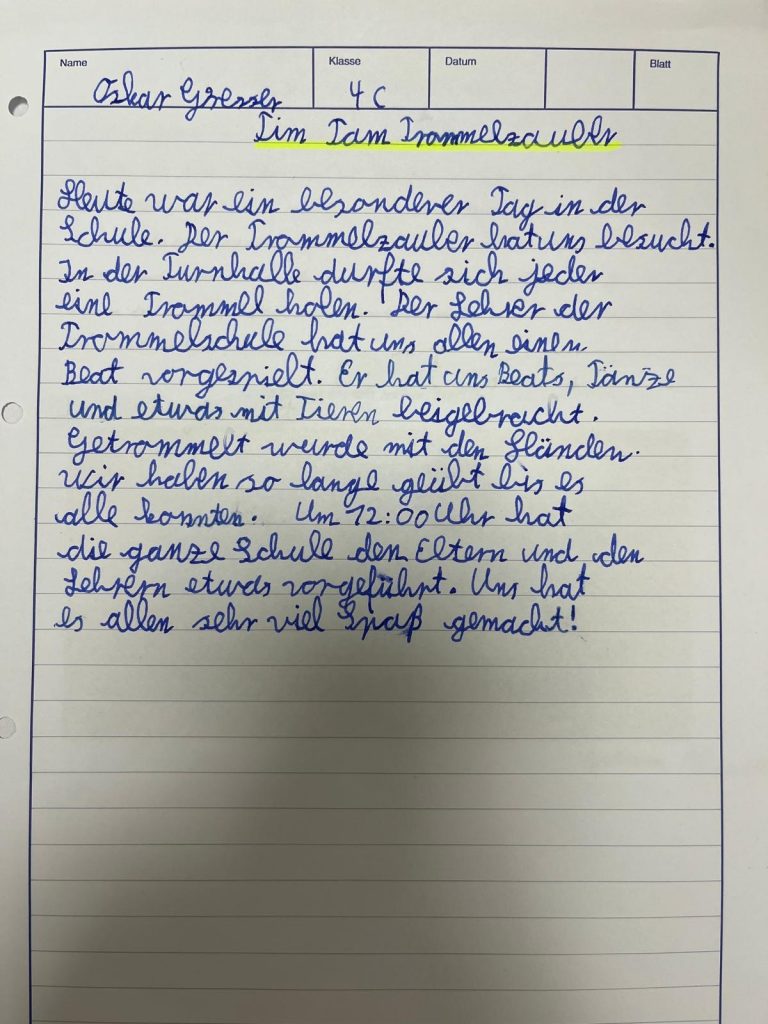 Name Klasse Datum Blatt
Oskar Gresser 4c
Tim Tam Trommelzauber
Heute war ein besonderer Tag in der
Schule. Der Trommelzauber hat uns besucht.
In der Turnhalle durfte sich jeder
eine Trommel holen. Der Lehrer der
Trommelschule hat uns allen einen
Beat vorgespielt. Er hat uns Beats, Tänze
und etwas mit Tieren beigebracht.
Getrommelt wurde mit den Händen.
Wir haben so lange geübt bis es
alle konnten. Um 12:00 Uhr hat
die ganze Schule den Eltern und den
Lehrern etwas vorgeführt. Uns hat
es allen sehr viel Spaß gemacht!